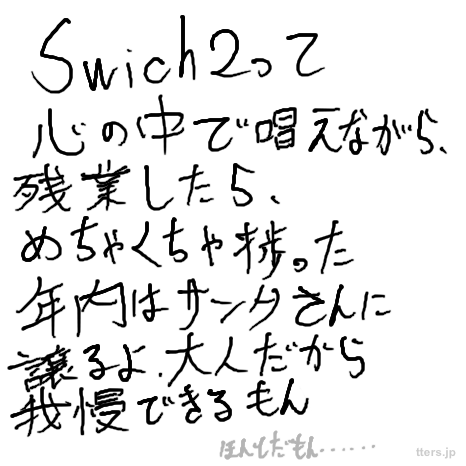 Swich2って
心の中で唱えながら、
残業したら、
めちゃくちゃ捗った
年内はサンタさんに
譲るよ、大人だから
我慢できるもん
ほんとだもん……
tters.jp